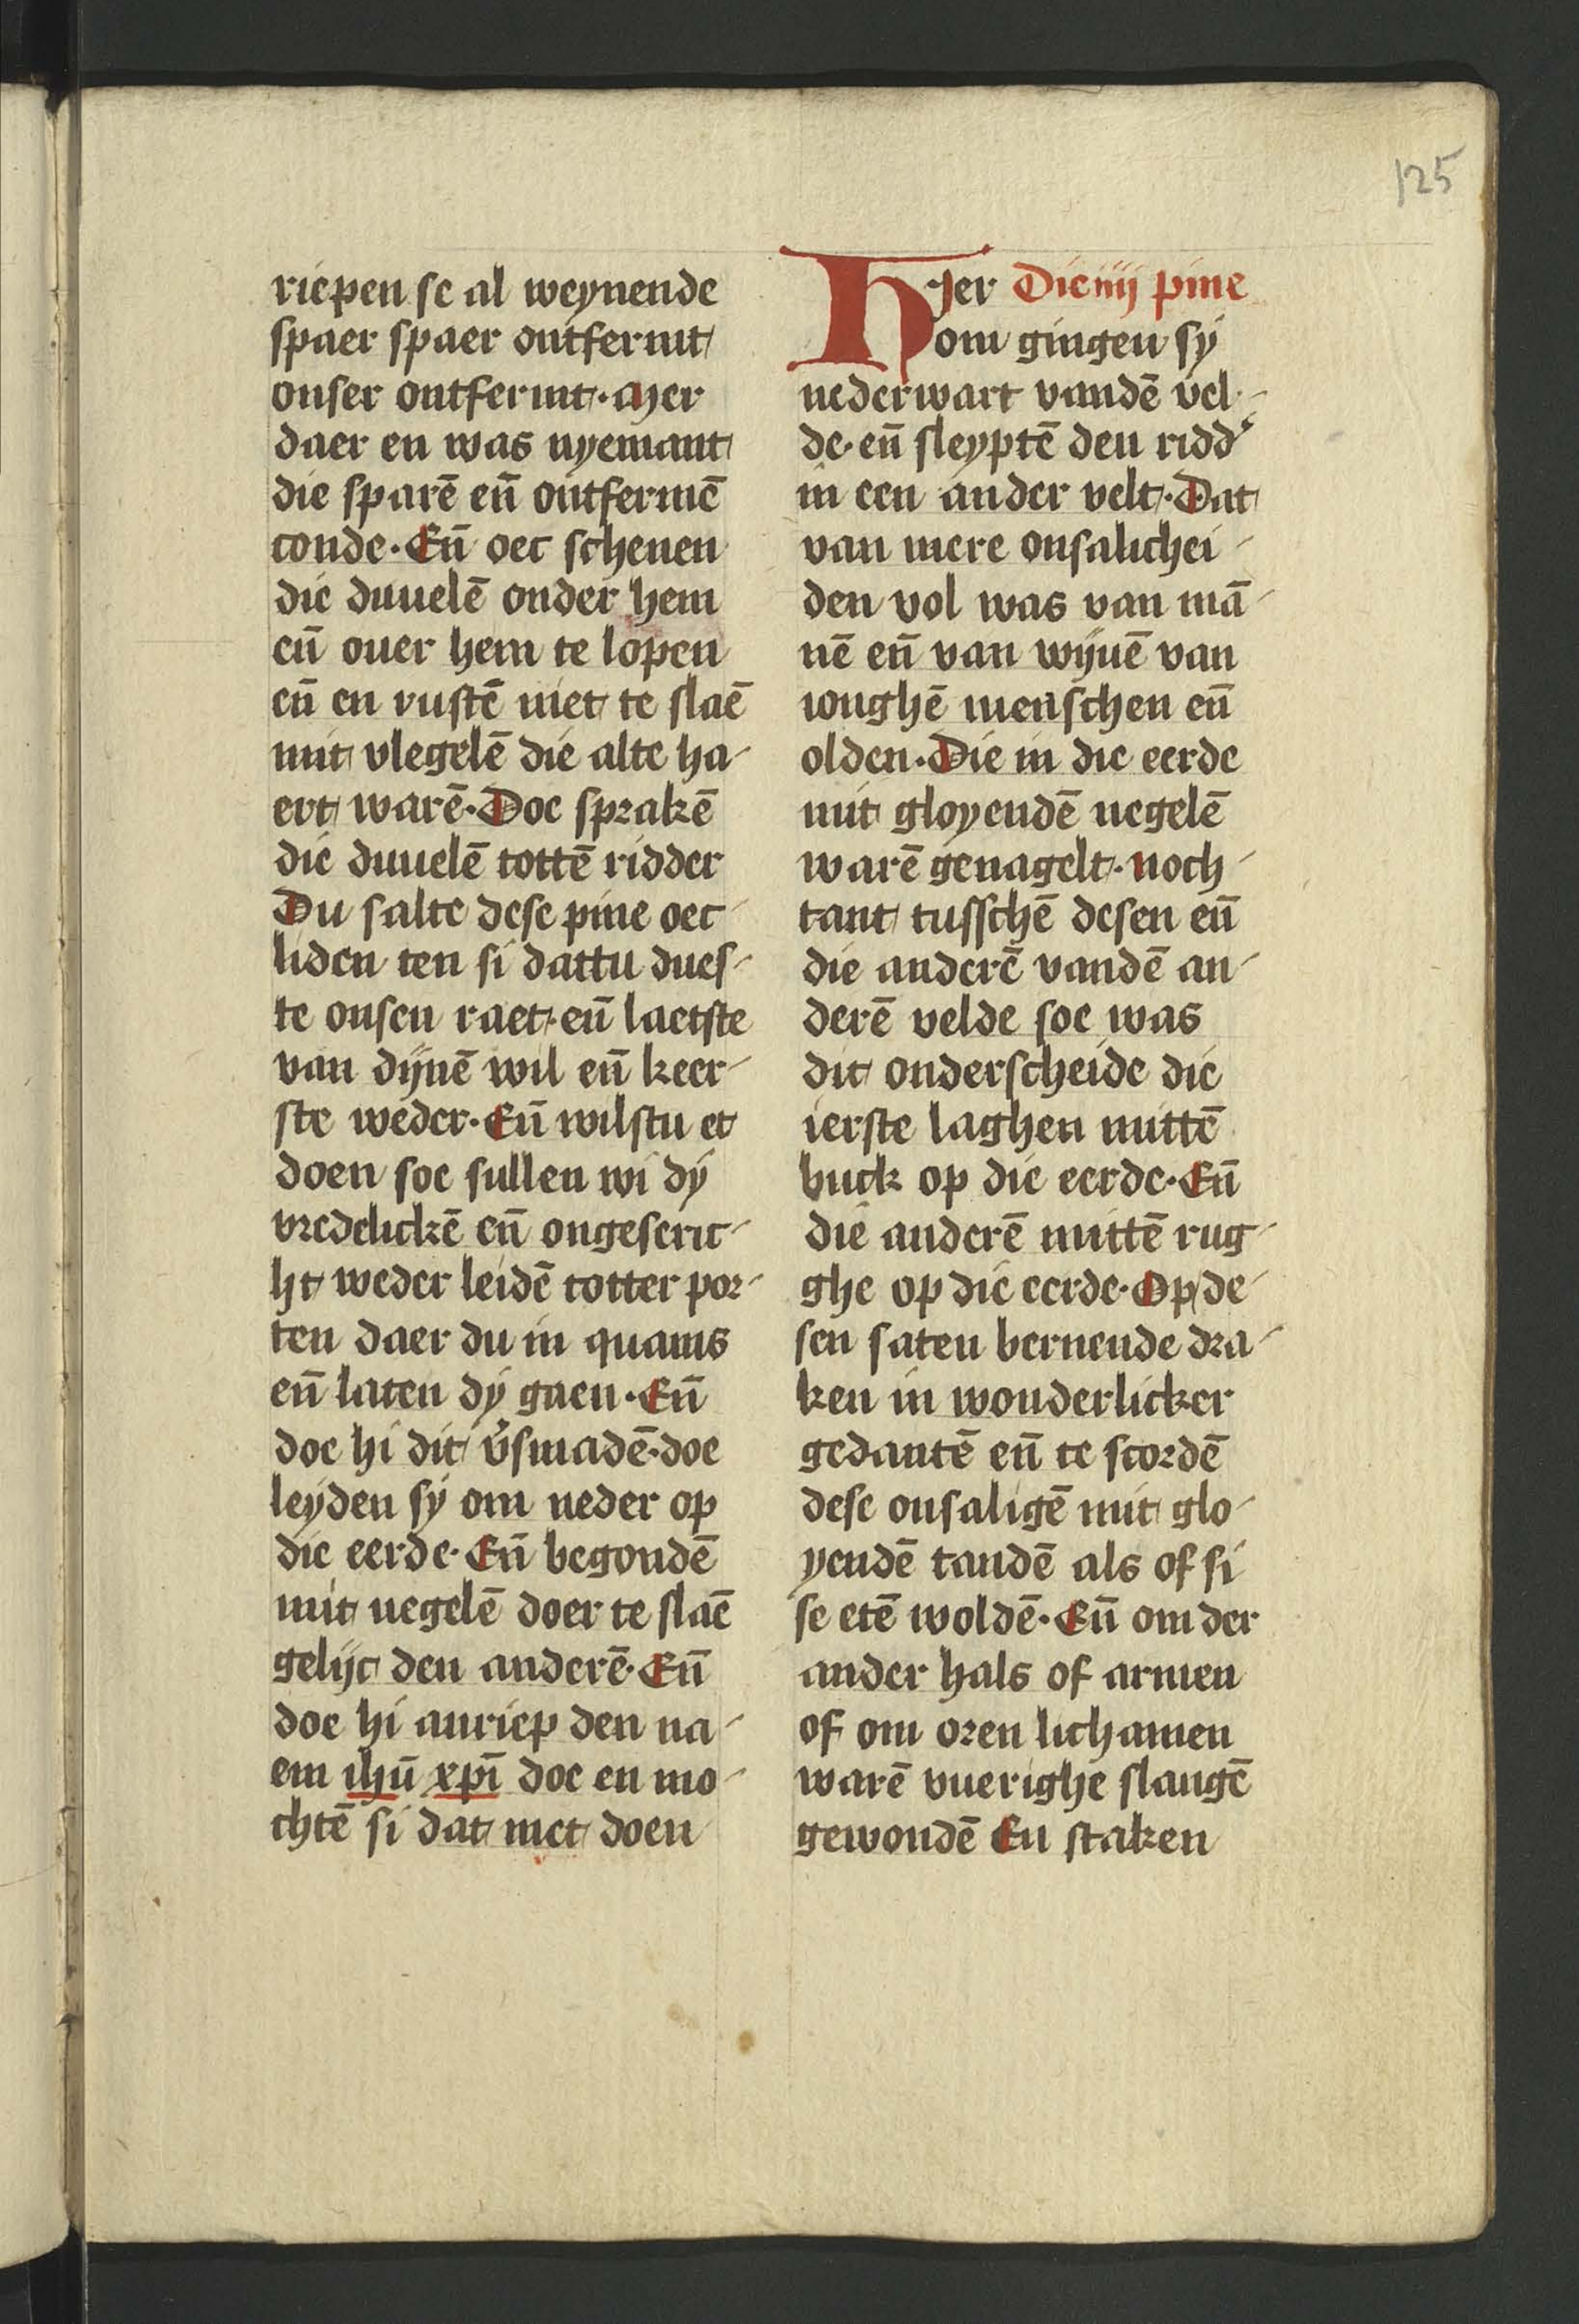 125
riepen se al weynende
spaer spaer ontfermt
onser ontfermt· mer
daer en was nyemant
die sparē eñ ontfermē
conde· Eñ oec schenen
die duuelē onder hem
eñ ouer hem te lopen
eñ en rustē niet te slaē
mit vlegelē die alte ha-
ert warē· Doe sprakē
die duuelē tottē ridder
Du salte dese pine oec
liden ten si dattu dues-
te onsen raet· eñ laetste
van dijnē wil eñ keer-
ste weder· Eñ wilstu et
doen soe sullen wi dy
vredelickē eñ ongeseric-
ht weder leidē totter por-
ten daer du in quams
eñ laten dy gaen· Eñ
doe hi dit v̓smadē· doe
leyden sy om neder op
die eerde· Eñ begondē
mit negelē doer te slaē
gelijc den anderē· Eñ
doe hi anriep den na-
em ihū xpī doe en mo-
chtē si dat niet doen
Hier Die iiij pine
om gingen sy
nederwart vandē vel-
de· eñ sleyptē den ridd̓
in een ander velt· Dat
van mere onsalichei-
den vol was van mā-
nē eñ van wijuē van
ionghē menschen eñ
olden· Die in die eerde
mit gloyendē negelē
warē genagelt· noch-
tant tusschē desen eñ
die anderē vandē an-
derē velde soe was
dit onderscheide die
ierste laghen mittē
buck op die eerde· Eñ
die anderē mittē rug-
ghe op die eerde· Op de-
sen saten bernende dra-
ken in wonderlicker
gedantē eñ te scordē
dese onsaligē mit glo-
yendē tandē als of si
se etē woldē· Eñ om der
ander hals of armen
of om oren lichamen
warē vuerighe slangē
gewondē En staken